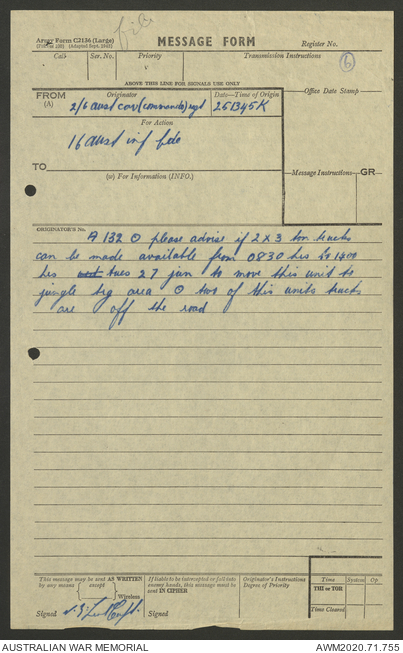 file
Army Form C2136 (Large)
(Adapted Sept. 1942)
MESSAGE FORM
Register No.
Call
Ser. No.
Priority
Transmission Instructions
V
6
ABOVE THIS LINE FOR SIGNALS USE ONLY
FROM
(A)
Originator
Date—Time of Origin
Office Date Stamp
2/6 aust cav (commando) regt
251345K
For Action
16 aust inf bde
TO
(W) For Information (INFO.)
Message Instructions
GR
ORIGINATOR'S No.
A 132 O please advise if 2 x 3 ton trucks
can be made available from 0830 hrs to 1400
hrs tues 27 jun to move this unit to
jungle trg area O two of this units trucks
are off the road
This message may be sent AS WRITTEN
by any means except
Wireless
If liable to be intercepted or fall into
enemy hands, this message must be
sent IN CIPHER
Originator's Instructions
Degree of Priority
Time
System
Op
THI or TOR
Time Cleared
Signed
Signed
AUSTRALIAN WAR MEMORIAL
AWM2020.71.755